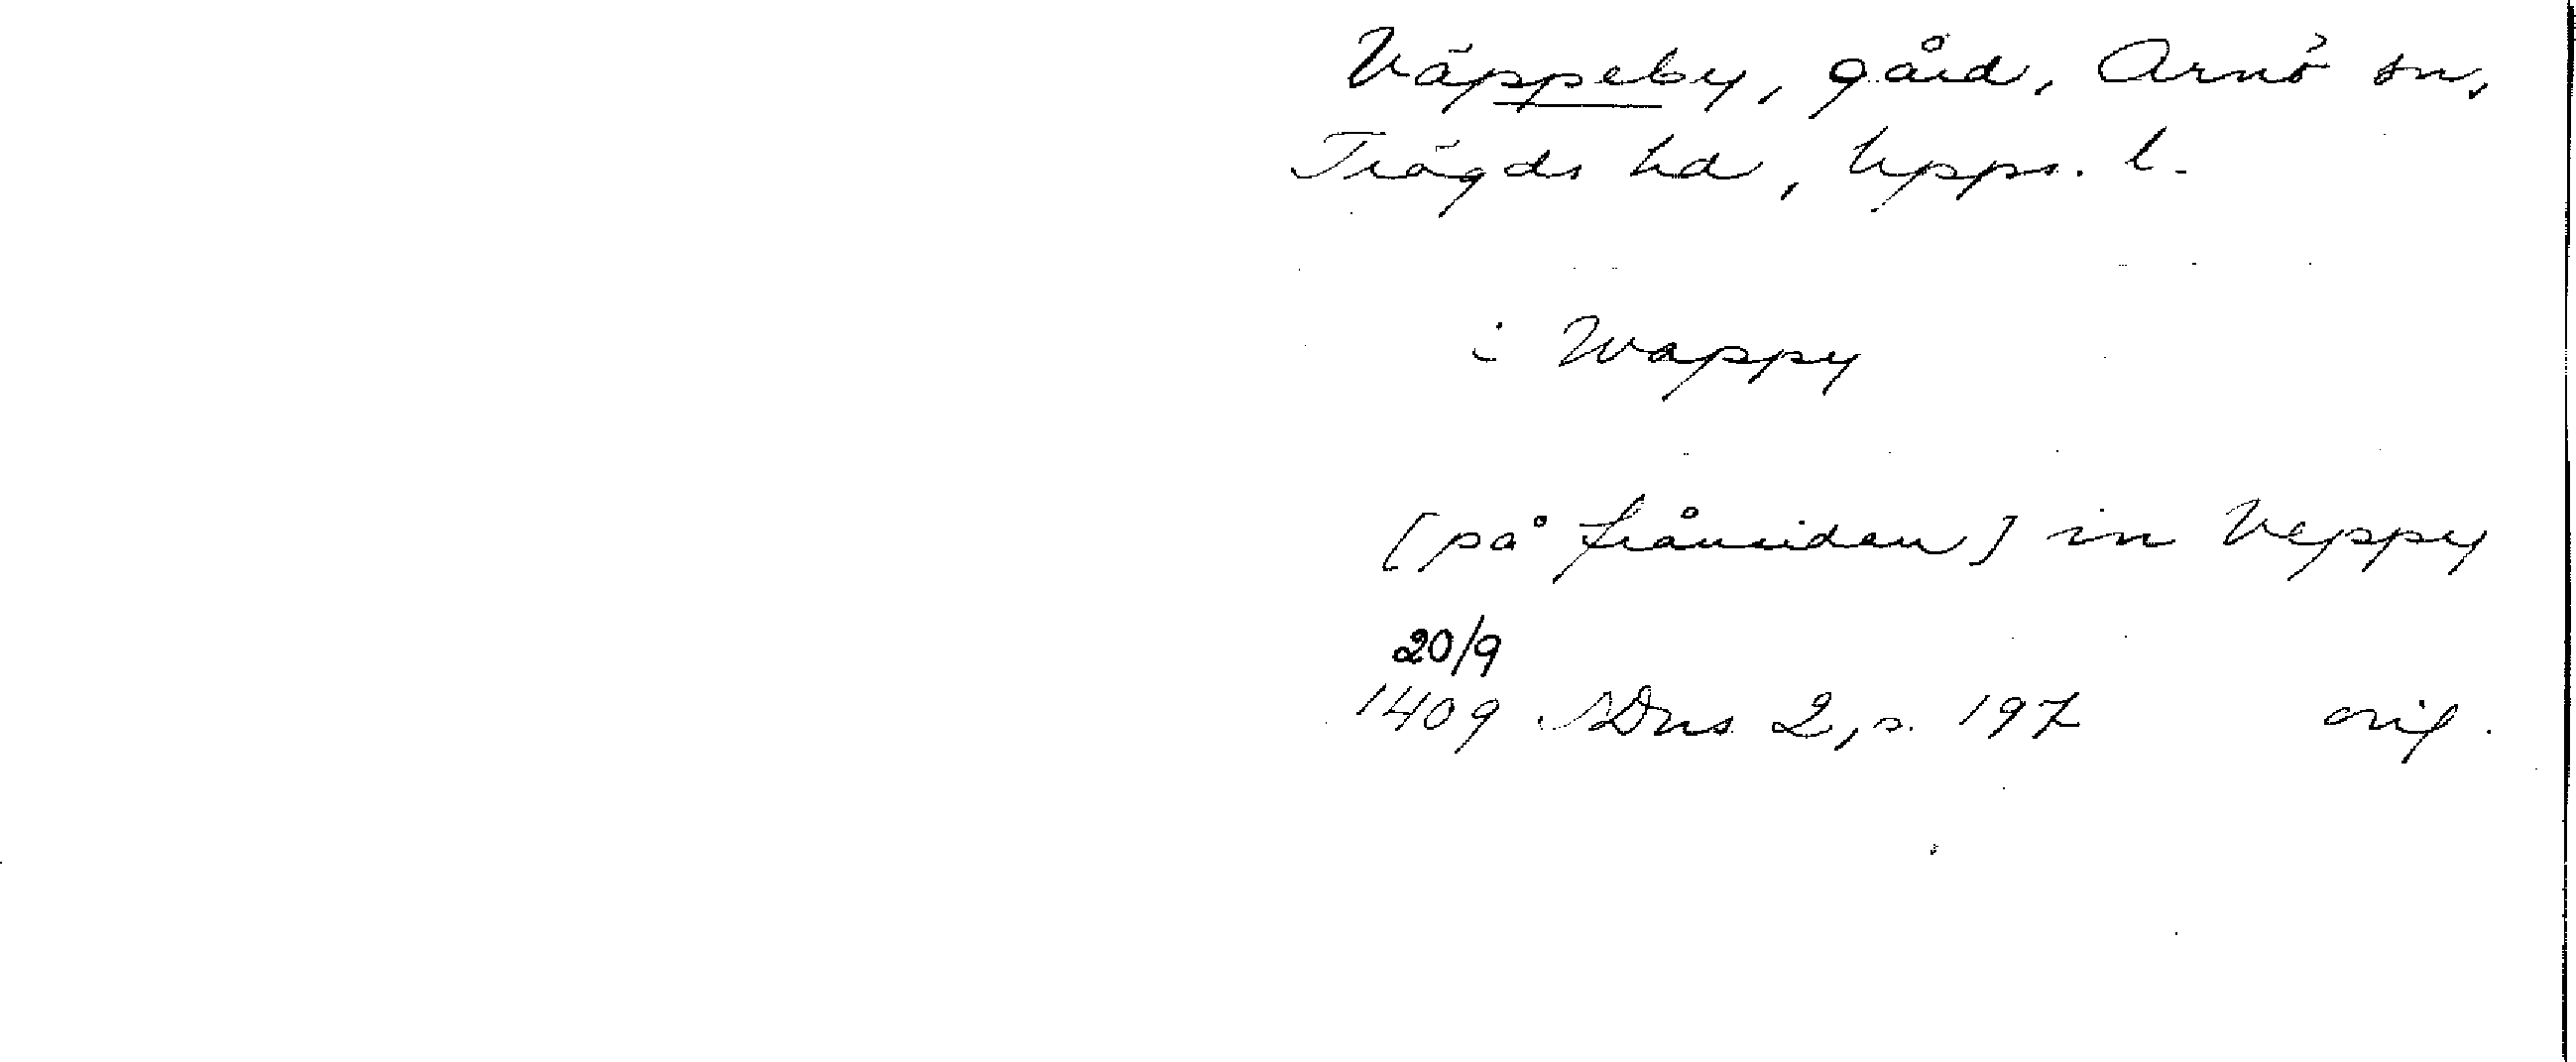 Väppeby, gård, Arnö sn,
Trögds hd, Upps. l.
i Wappy
[på frånsidan] in Veppy
20/9
1409 SDns 2, s. 197 orig.